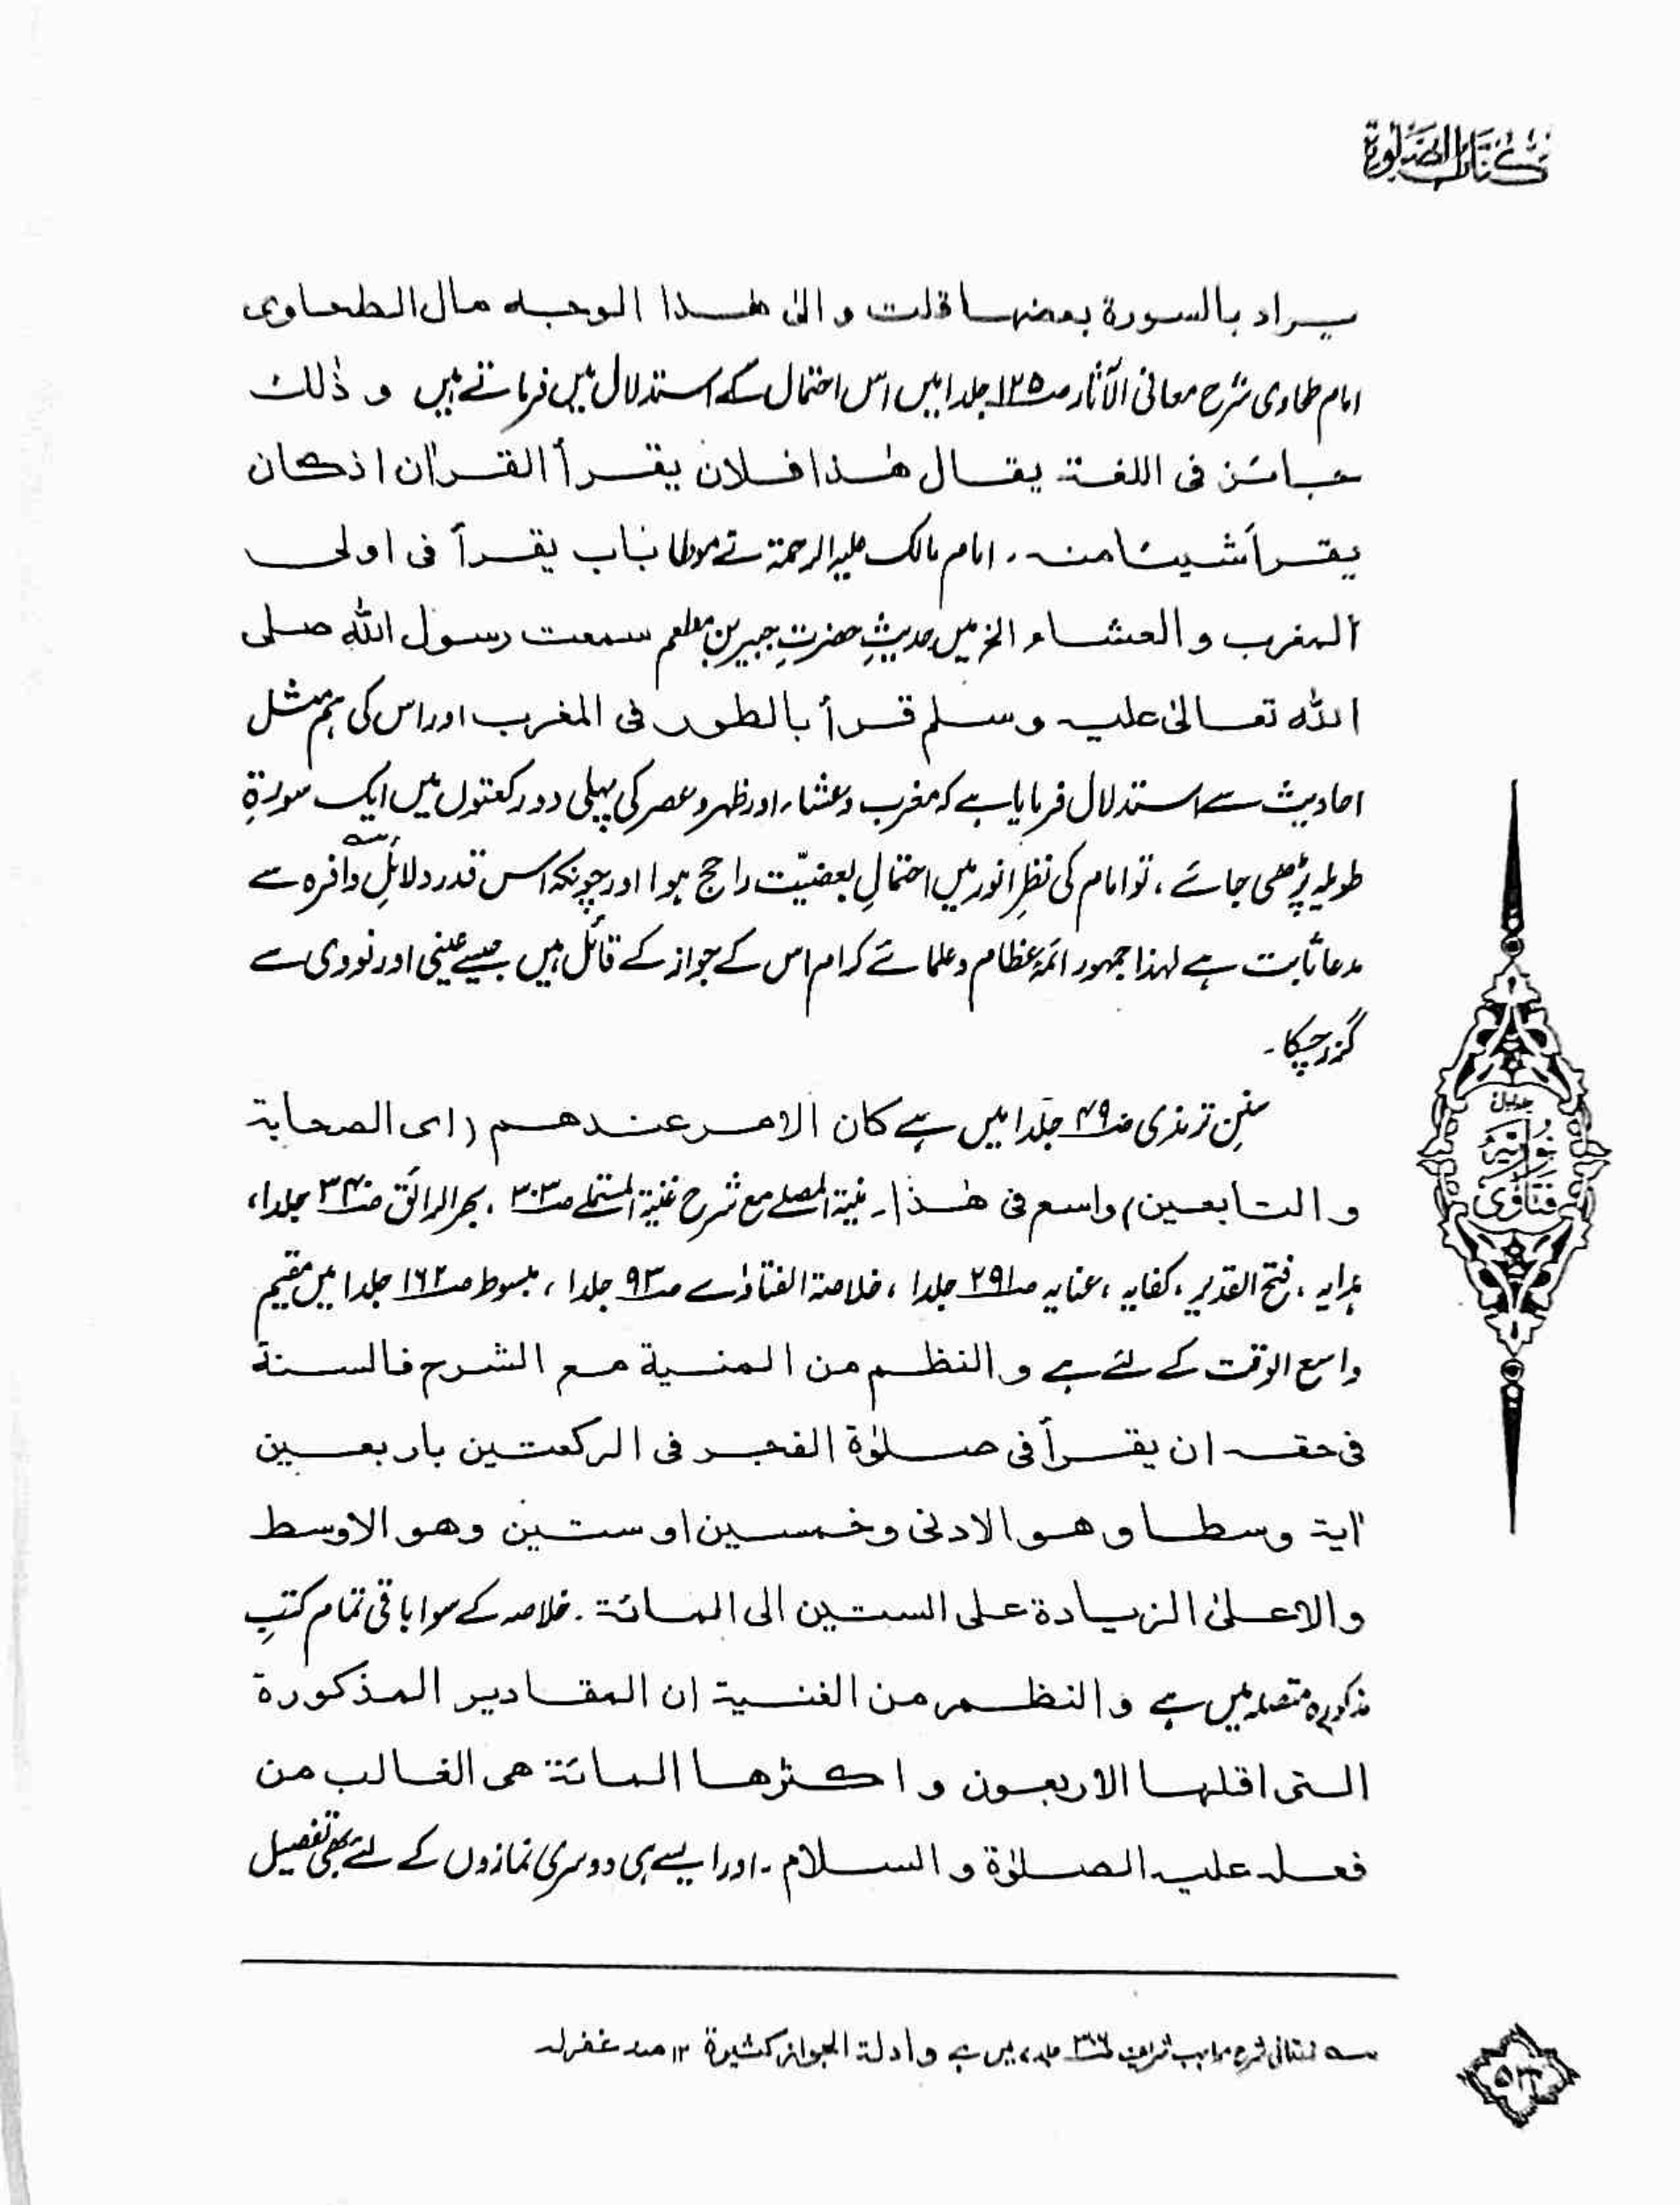 كتاب الصلوة
يراد بالسورة بعضها قلت و الى هذا الوجه مال الطحاوى
امام طحاوی شرح معانی الآثار صـ۱۲۵ جلد ۱ میں اس احتمال کے استدلال میں فرماتے ہیں و ذٰلك
جائز فى اللغة يقال هٰذا فلان يقرأ القراٰن اذ كان
يقرأ شيئا منه ۔ امام مالک علیہ الرحمۃ نے موطا باب يقرأ فى اولى
المغرب و العشاء الخ میں حدیثِ حضرتِ جبیر بن مطعم سمعت رسول الله صلى
الله تعالىٰ عليه و سلم قرأ بالطور فى المغرب اور اس کی ہم مثل
احادیث سے استدلال فرمایا ہے کہ مغرب و عشاء اور ظہر و عصر کی پہلی دو رکعتوں میں ایک سورۃِ
طویلہ پڑھی جائے ، تو امام کی نظرِ انور میں احتمالِ بعضیّت راجح ہوا اور چونکہ اس قدر دلائلِ وافرہ سے
مدعا ثابت ہے لہذا جمہور ائمۂ عظام و علمائے کرام اس کے جواز کے قائل ہیں جیسے عینی اور نووی سے
گزر چکا ۔
سننِ ترمذی صـ۴۹ جلد ۱ میں ہے كان الامر عندهم (اى الصحابة
و التابعين) واسع فى هٰذا ۔ منیۃ المصلے مع شرح غنیۃ المستملے صـ۳۰۳ ، بحر الرائق صـ۳۴۰ جلد ۱،
ہدایہ ، فتح القدیر ، کفایہ ، عنایہ صـ۲۹۱ جلد ۱ ، خلاصۃ الفتاوٰے صـ۹۳ جلد ۱ ، مبسوط صـ۱۶۲ جلد ۱ میں مقیم
واسع الوقت کے لئے ہے و النظم من المنية مع الشرح فالسنة
فى حقه ان يقرأ فى صلوٰة الفجر فى الركعتين باربعين
اٰية وسطا و هو الادنى و خمسين او ستين وهو الاوسط
و الاعلىٰ الزيادة على الستين الى المائة ۔ خلاصہ کے سوا باقی تمام کتبِ
مذکورہ متصلہ میں ہے و النظم من الغنية ان المقادير المذكورة
التى اقلها الاربعون و اكثرها المائة هى الغالب من
فعله عليه الصلوٰة و السلام ۔ اور ایسے ہی دوسری نمازوں کے لئے بھی تفصیل
شرح مواہب شریف صـ۳۱۶ جلد ۷ میں ہے و ادلة الجواز كثيرة ۱۲ منه غفرله
جلد اول
فتاوٰی نوریہ